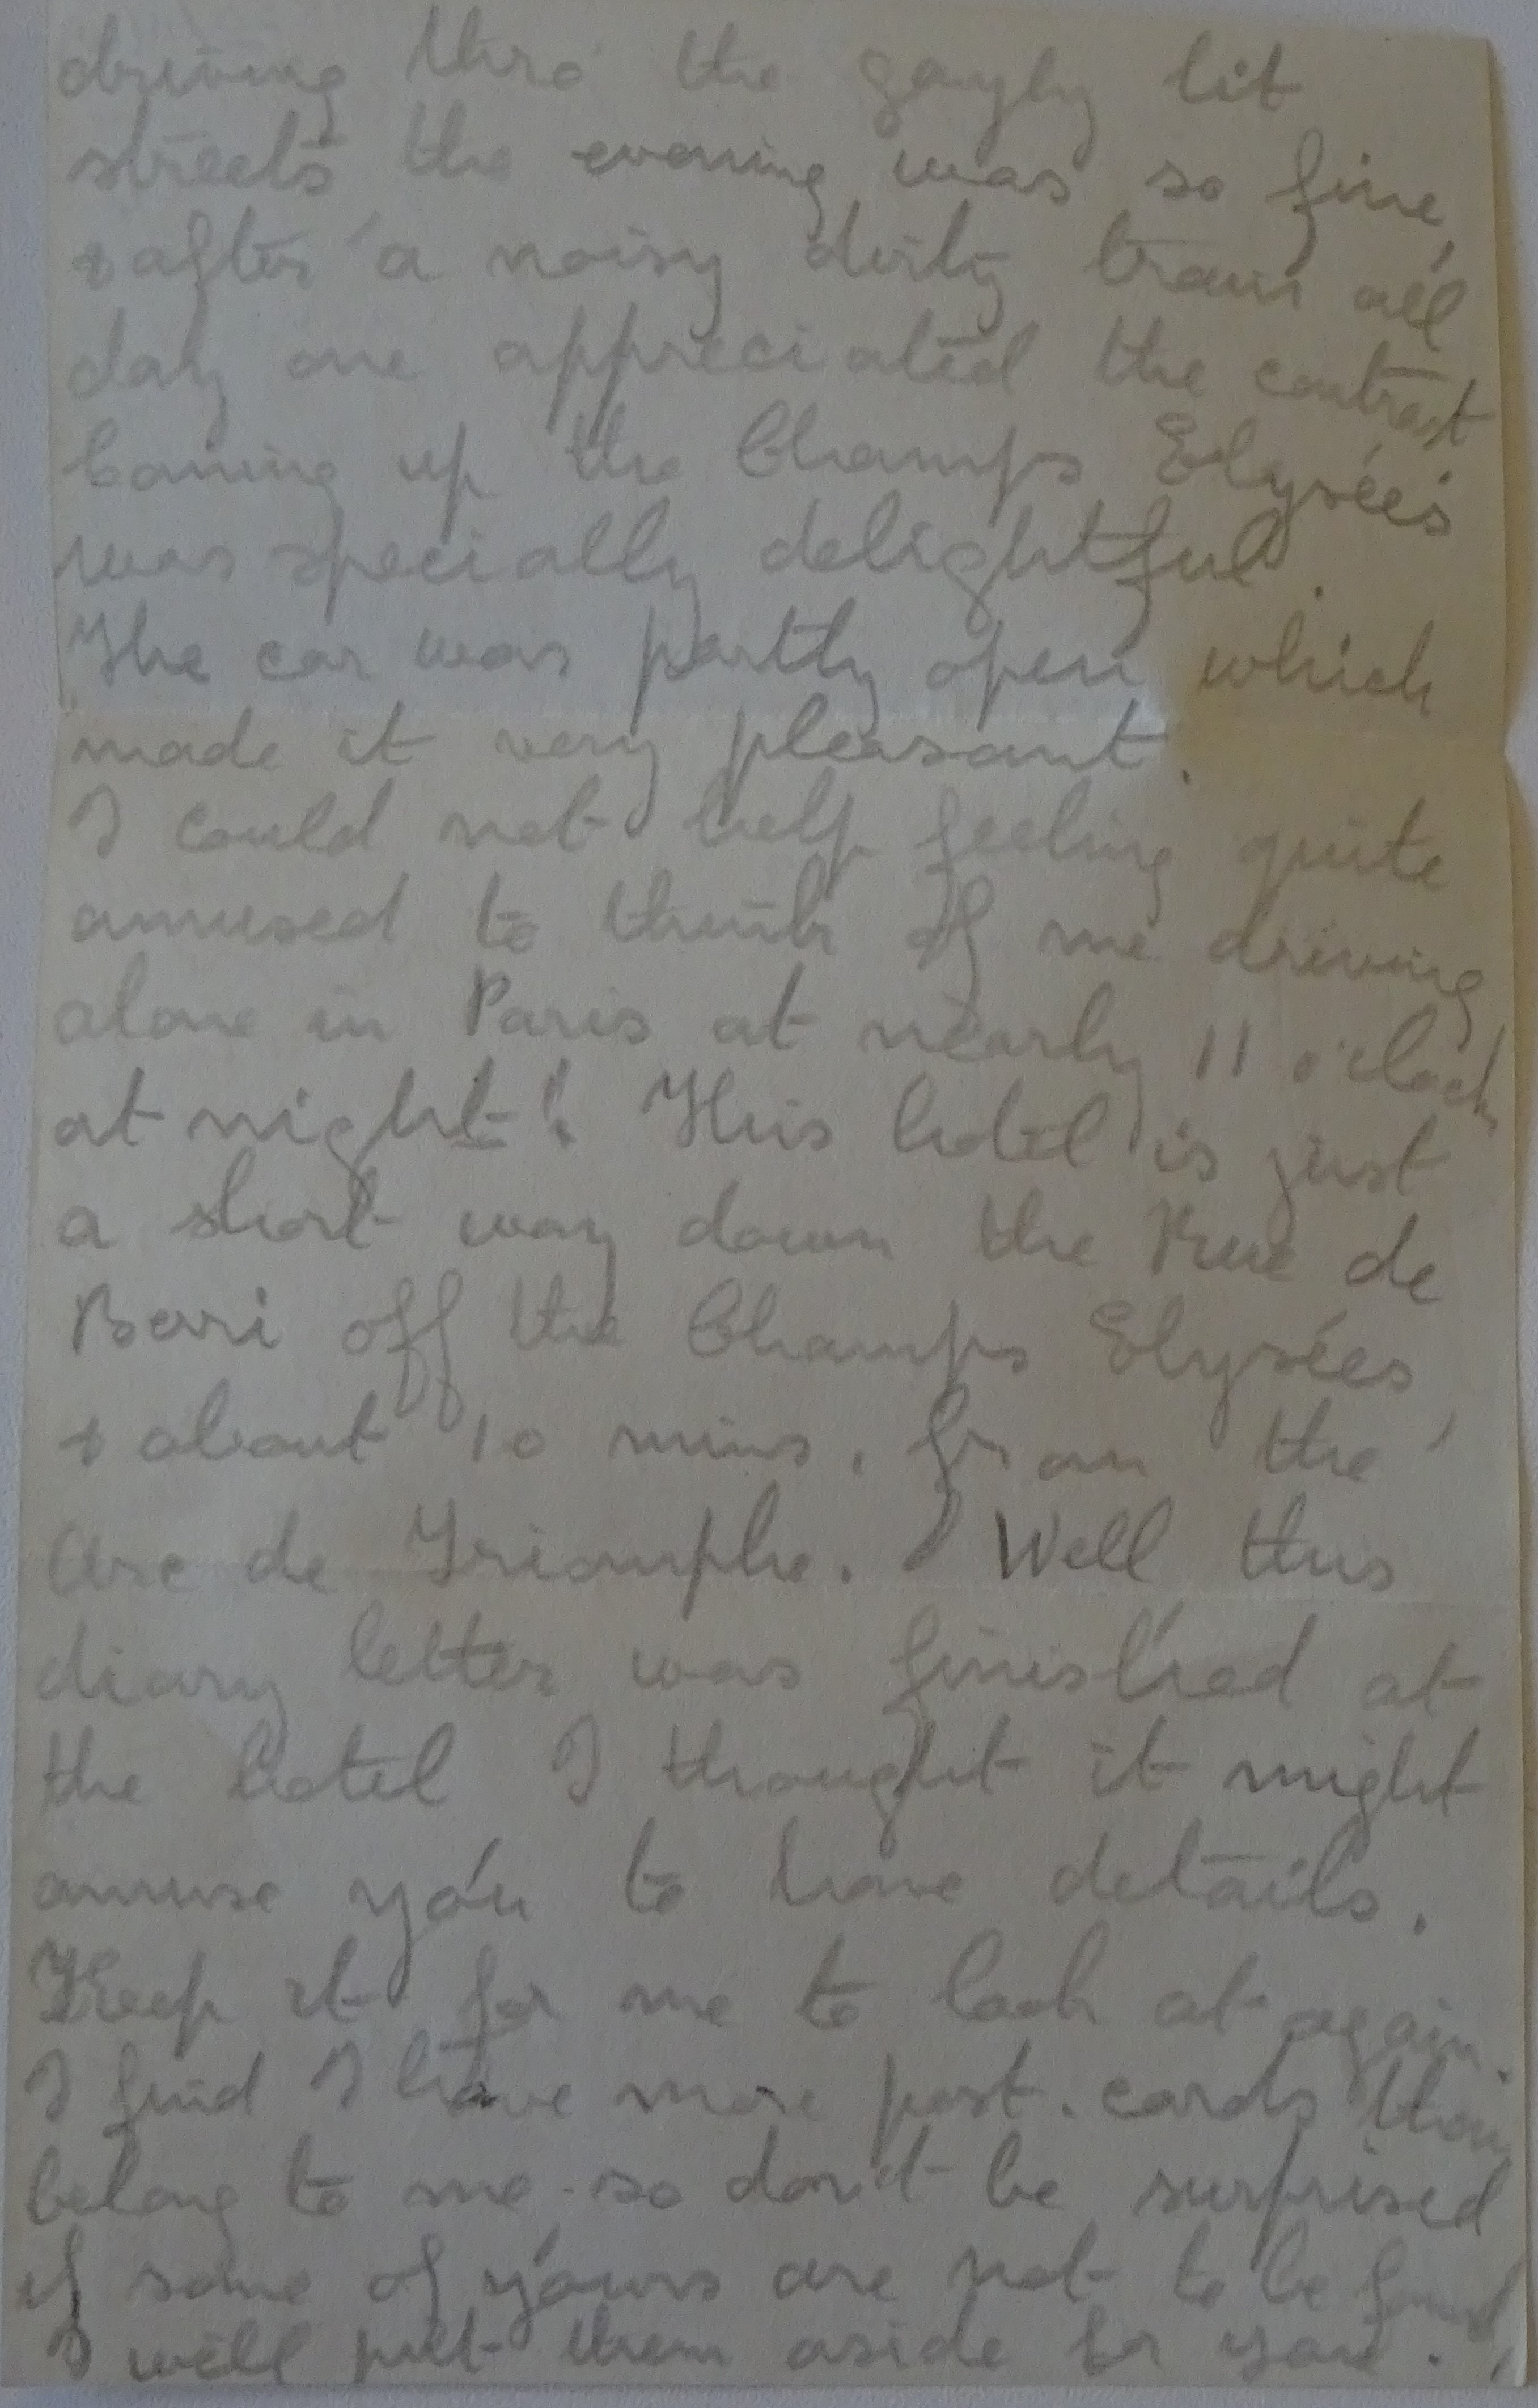 driving thro' the gayly lit
streets the evening was so fine,
& after a noisy dirty train all
day one appreciated the contrast
Coming up the Champs Elysées
was specially delightful.
The car was partly open which
made it very pleasant.
I could not help feeling quite
amused to think of me driving
alone in Paris at nearly 11 o'clock
at night! This hotel is just
a short way down the Rue de
Berri off the Champs Elysées,
& about 10 mins. from the
Arc de Triomphe. Well this
diary letter was finished at
the hotel I thought it might
amuse you to have details.
Keep it for me to look at again.
I find I have more post-cards than
belong to me so don't be surprised
if some of yours are not to be found,
I will put them aside for you.